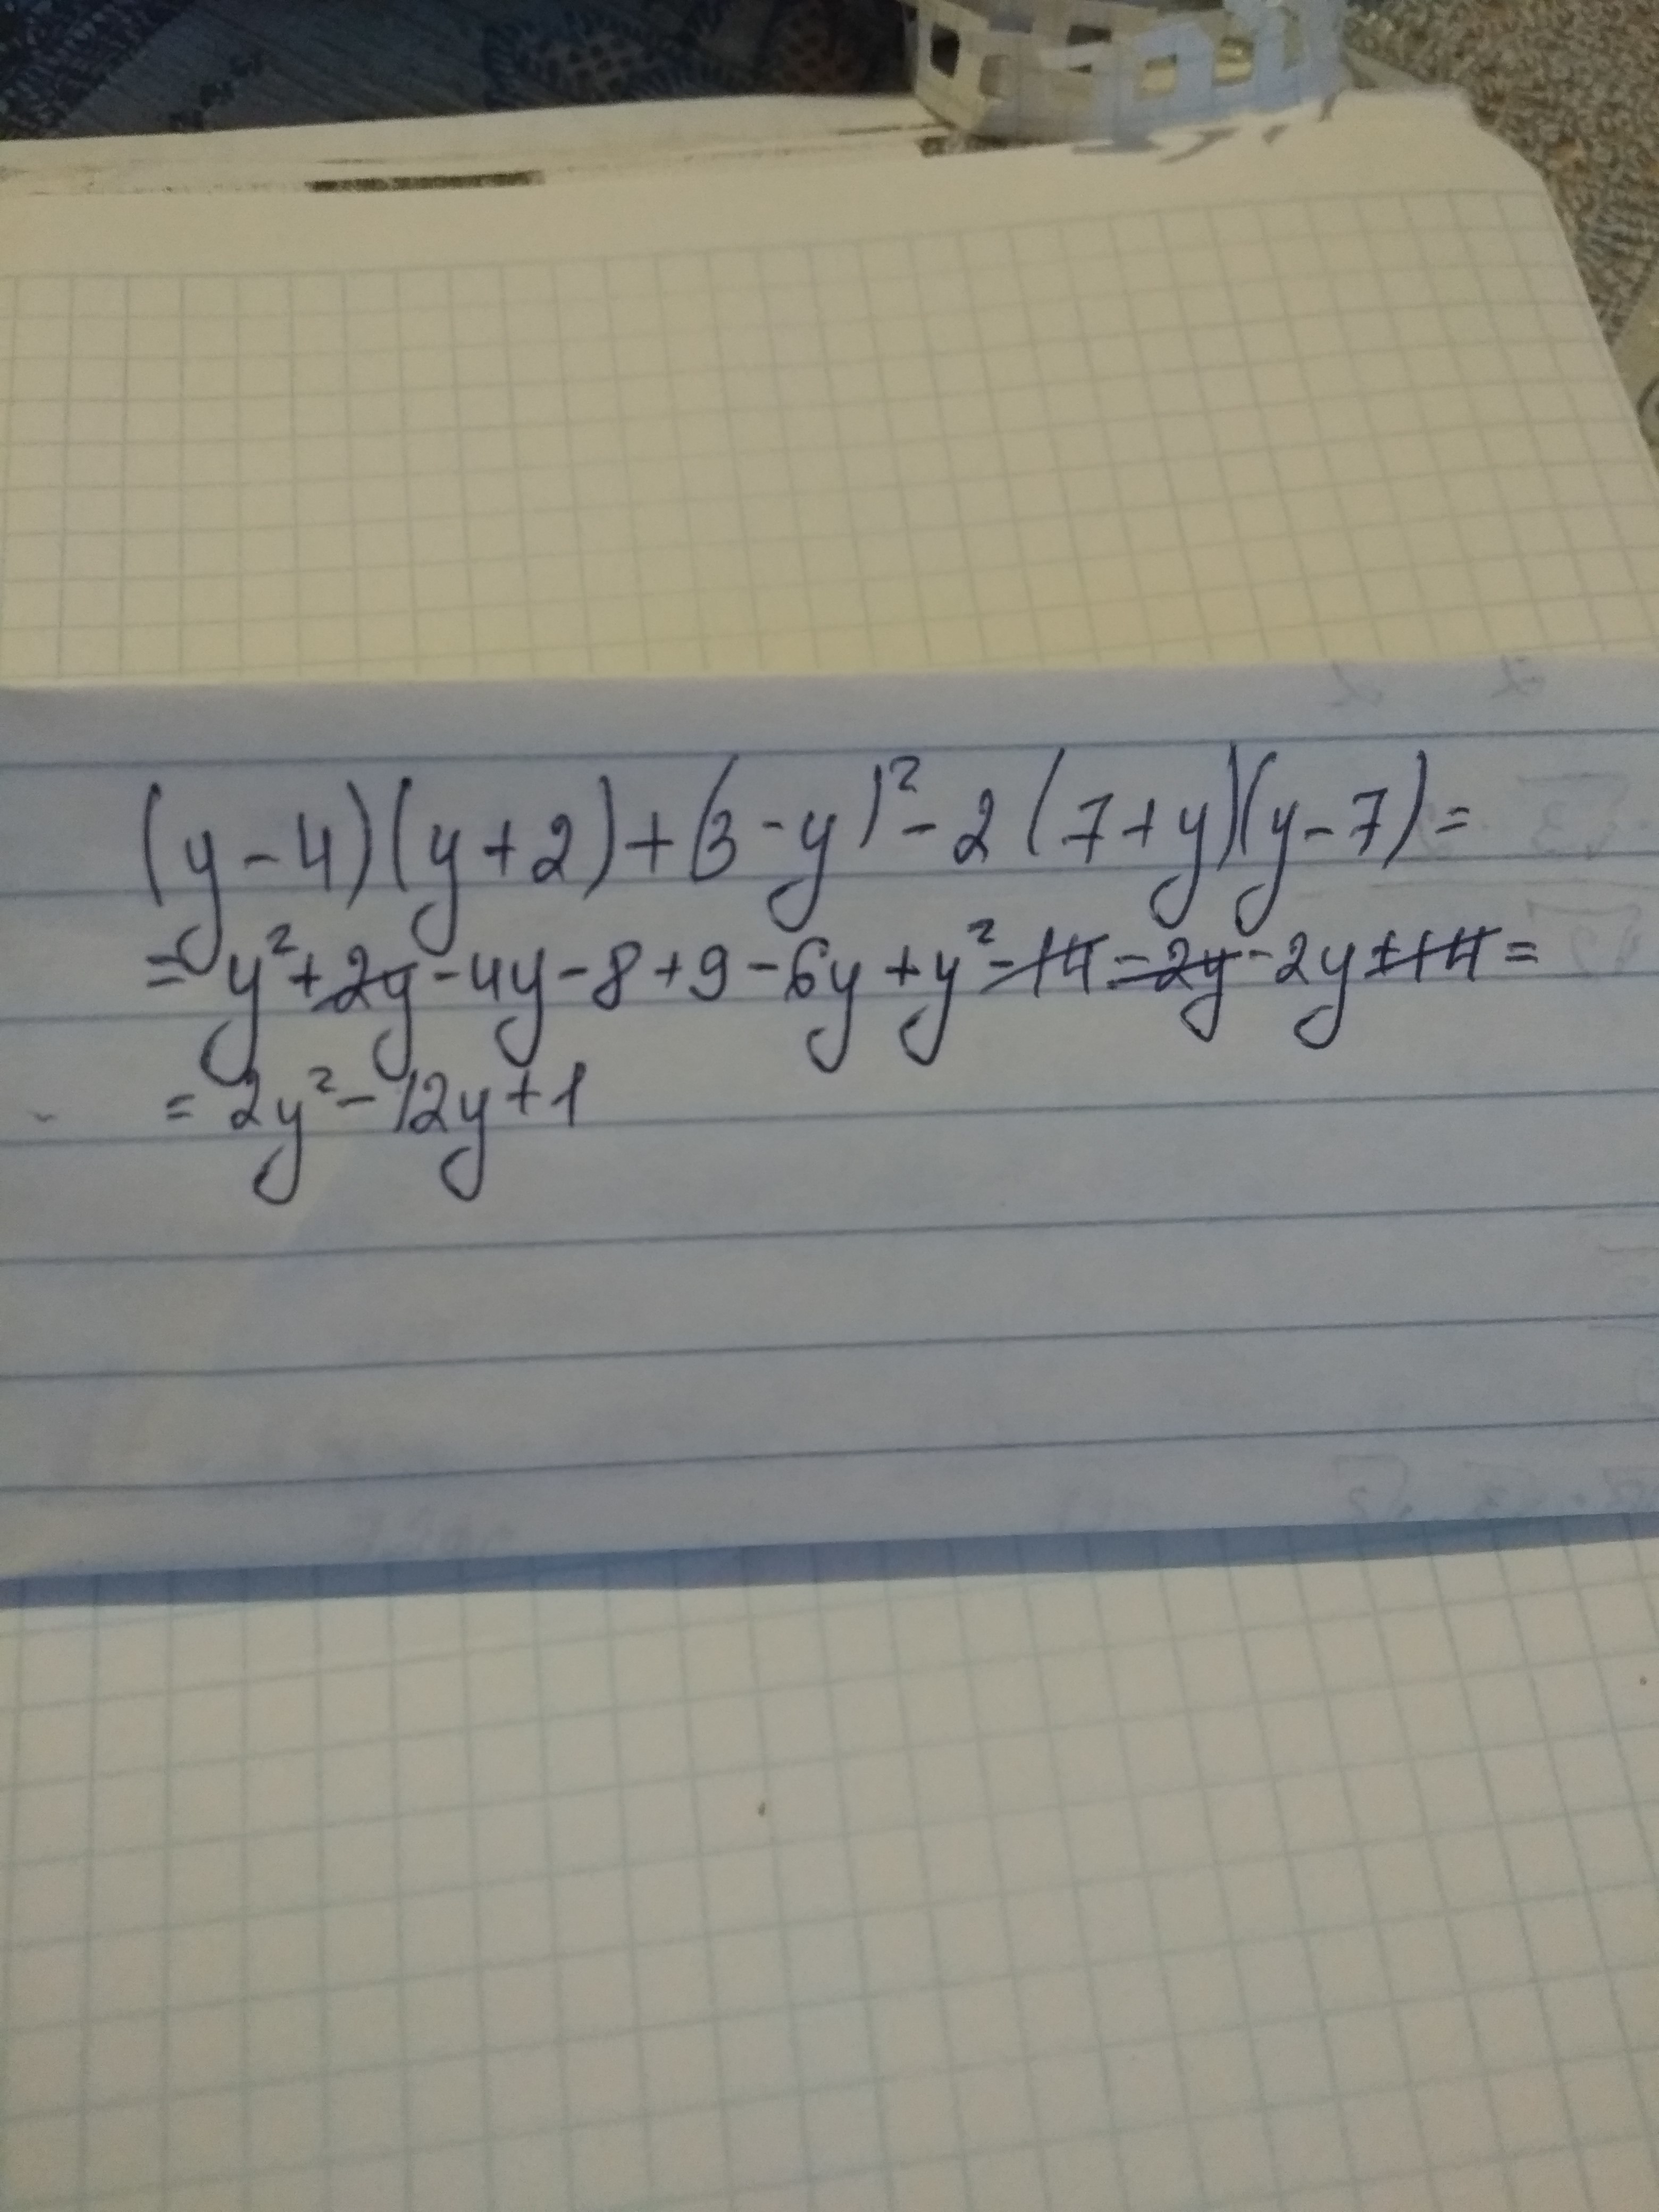 (y-4)(y+2)+(3-y)²-2(7+y)(y-7)=
=y²+2y-4y-8+9-6y+y²-14-2y-2y+14=
=2y²-12y+1